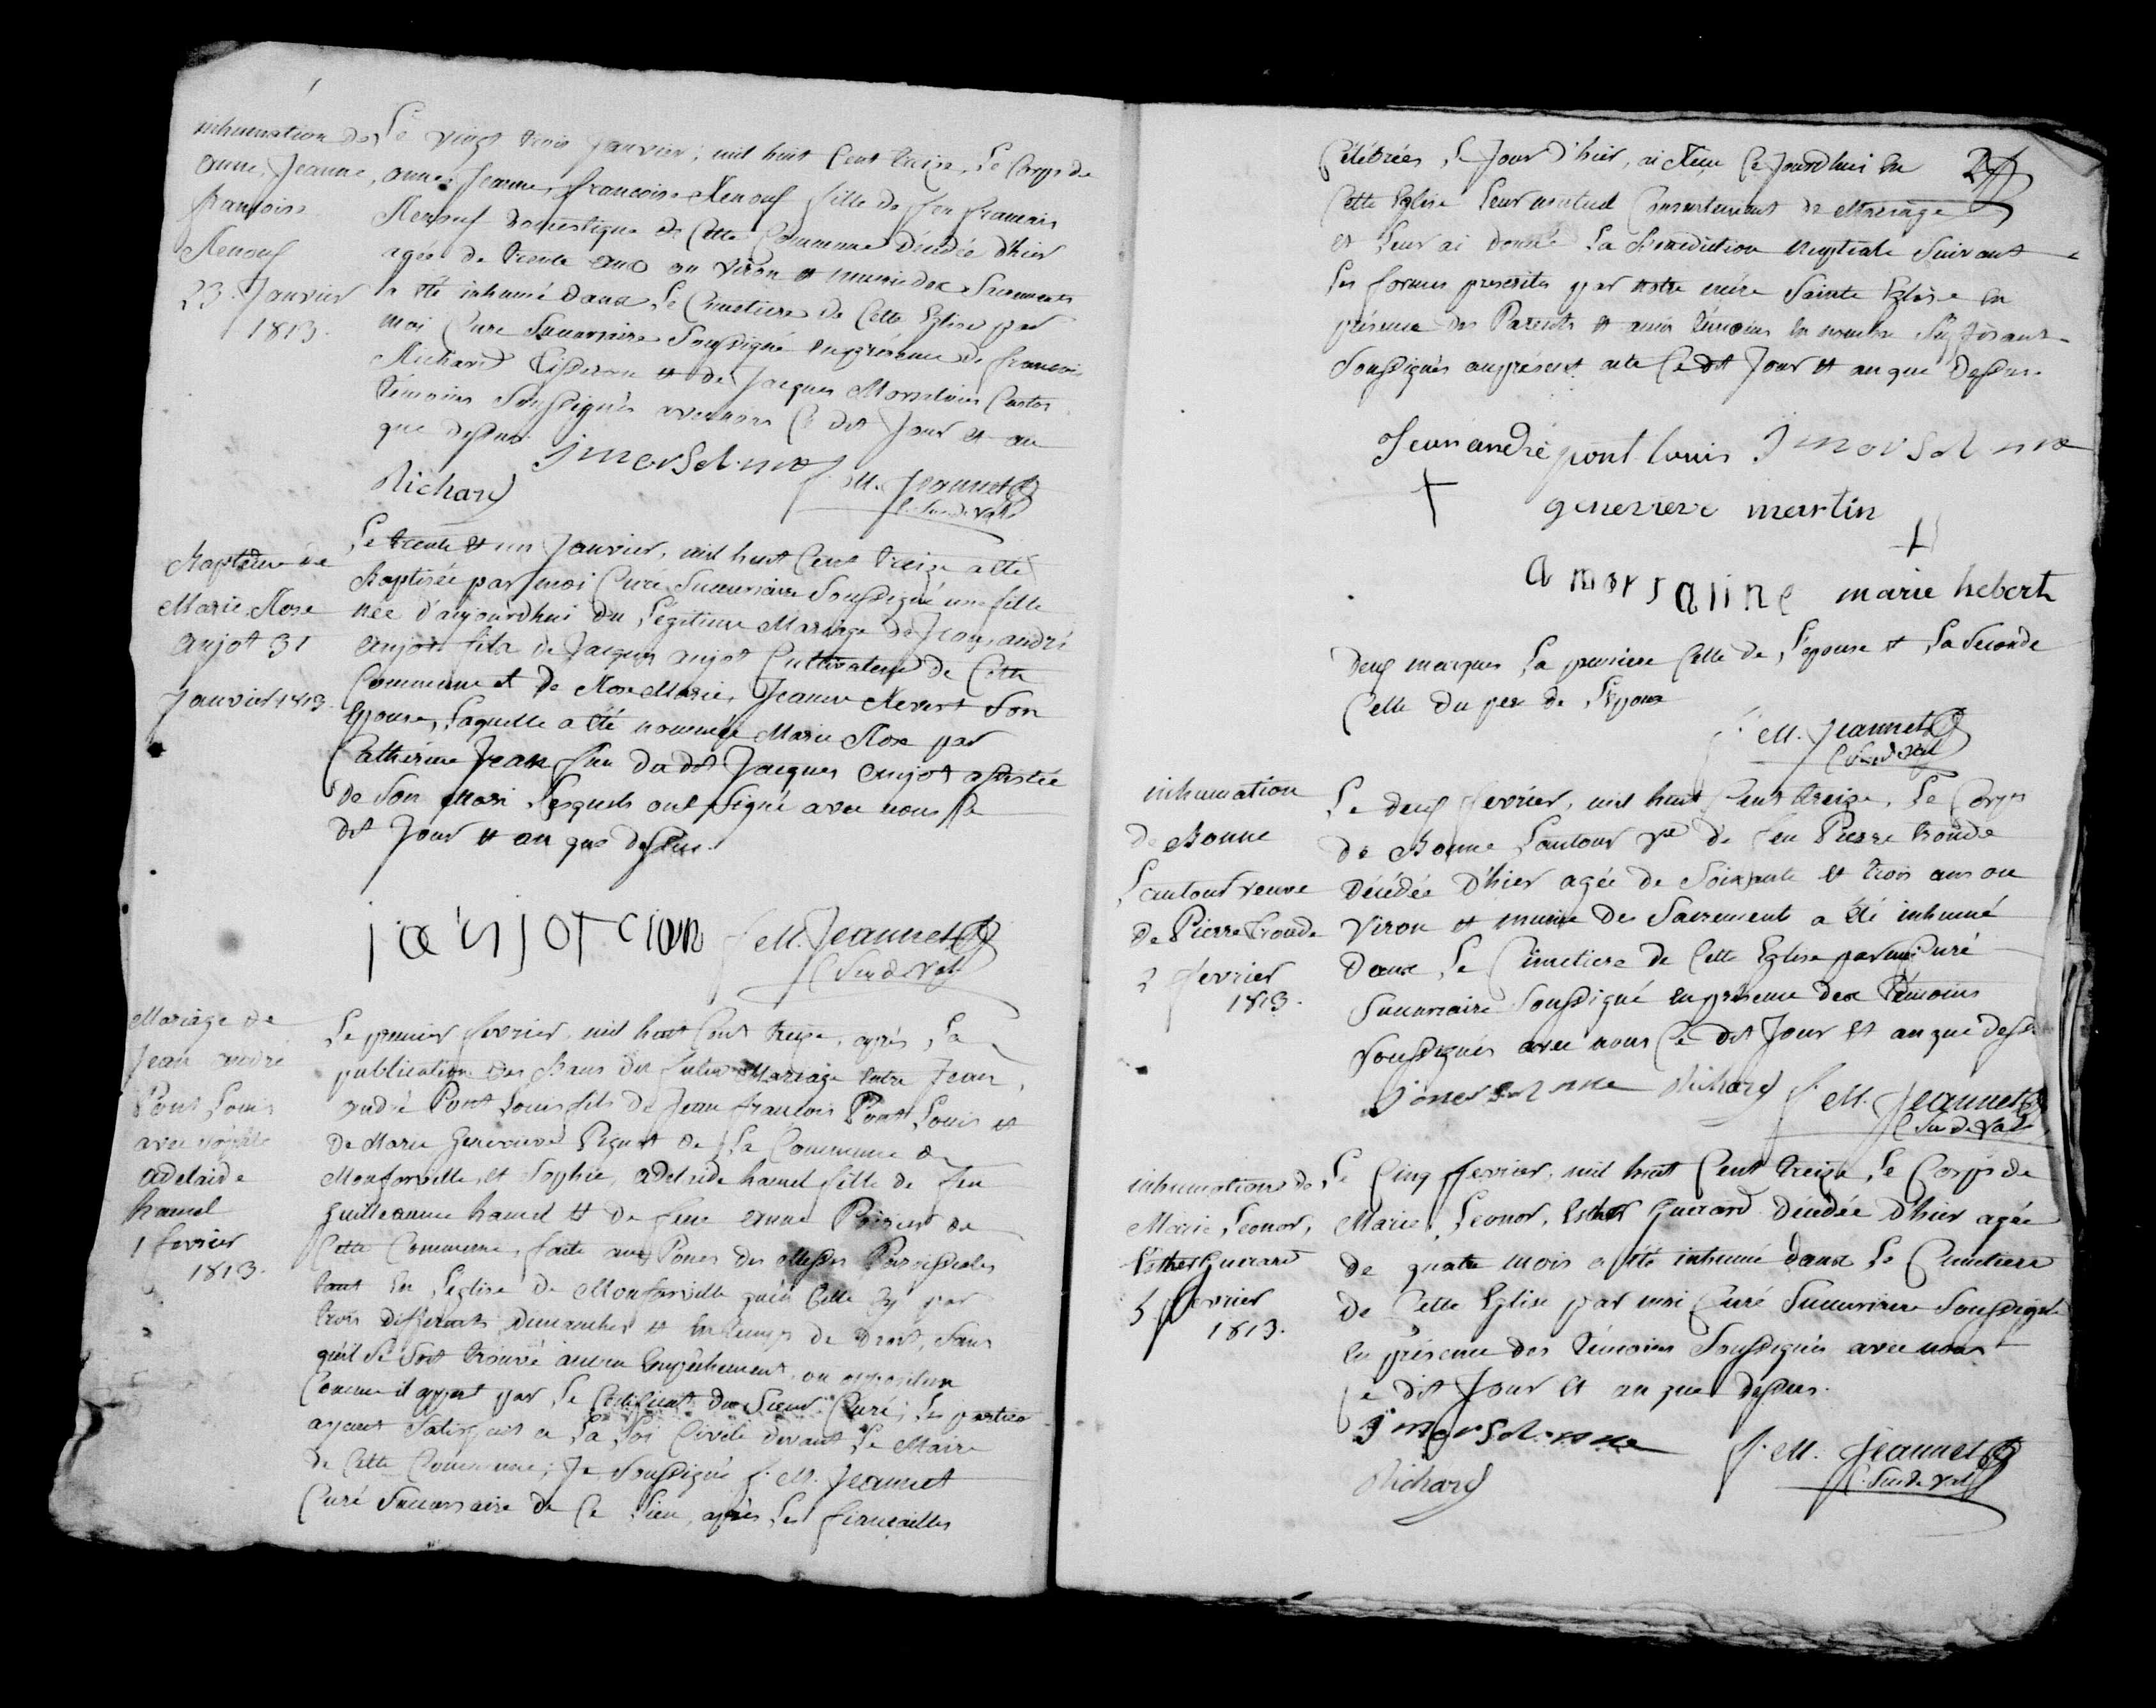 inhumation de
anne, Jeanne,
françoise
Renouf
23. Janvier
1813.
Le vingt trois Janvier, mil huit Cent treize, Le Corps de
anne, Jeanne, françoise Renouf fille de feu francois
Renouf domestique de Cette Commune décédée d'hier
agée de trente ans ou viron et munie des Sacrements
a été inhumé dans Le Cimetiere de Cette Eglise par
moi Curé Succursaire Soussigné en présence de francois
Richard et de Jacques Morseline Custos
témoins Soussignés avec nous Ce dit Jour et an
que dessus.
j morseline
Richard
f. M. Jeannet
C. Sur de Val
Baptême de
Marie Rose
anjot 31
Janvier 1813
Le trente et un Janvier, mil huit Cent treize a été
Baptisée par moi Curé Succursaire Soussigné une fille
née d'aujourdhui du Légitime Mariage de Jean, andré
anjot fils de Jacques anjot Cultivateur de Cette
Commune et de Rose Marie, Jeanne Revert Son
Epouse, Laquelle a été nommée Marie Rose par
Catherine Jean du dit Jacques anjot assistée
de Son Mari Lesquels ont Signé avec nous Ce
dit Jour et an que dessus.
j anjot cian
f. M. Jeannet
C. Sur de Val
Mariage de
Jean andré
Pont Louis
avec sophie
adelaide
hamel
1 fevrier
1813.
Le premier fevrier, mil huit Cent treize, après La
publication des Bans du futur Mariage Entre Jean,
andré Pont Louis fils de Jean francois Pont Louis et
de Marie Genevieve Pignot de La Commune de
Monfarville, et Sophie, adelaide hamel fille de feu
guilleaume hamel et de feue anne Poirier de
Cette Commune, faite aux Pones des Messes Paroissiales
tant En L'eglise de Monfarville qu'en Celle Cy par
trois differents Dimanches et En temps de Droit, Sans
qu'il Se Soit trouvé aucun Empêchement, ou opposition
Comme il appert par Le Certificat du Sieur Curé; Les parties
ayant Satisfait a La Loi Civile devant Le Maire
de Cette Commune; Je Soussigné f. M. Jeannet
Curé Succursaire de Ce Lieu, après Les fiancailles
2
Célébrées Le Jour d'hier, ai Reçu Ce Jourd'hui En
Cette Eglise Leur mutuel Consentement de Mariage
et Leur ai donné La Bénédiction Nuptiale Suivant
Les formes prescrites par notre mère Sainte Eglise En
présence des Parents et amis témoins En nombre Suffisant
Soussignés au présent acte Ce dit Jour et an que Dessus.
Jean andré pont louis j morseline
+ genevieve martin
+
a morsaline marie hebert
Deux marques La premiere Celle de L'épouse et La Seconde
Celle du pere de L'Epoux
f. M. Jeannet
C. Sur de Val
inhumation
de Bonne
Lautour veuve
de Pierre troude
2 fevrier
1813.
Le deux fevrier, mil huit Cent treize, Le Corps
de Bonne Lautour Ve de feu Pierre troude
décédée d'hier agée de Soixante et trois ans ou
Viron et munie des Sacrements a été inhumé
dans Le Cimetiere de Cette Eglise par moi Curé
Succursaire Soussigné en présence des témoins
Soussignés avec nous Ce dit Jour et an que dessus
j morseline Richard f. M. Jeannet
C. Sur de Val
inhumation de
Marie Leonor,
Esther Guerard
5 fevrier
1813.
Le Cinq fevrier, mil huit Cent treize, Le Corps de
Marie, Leonor, Esther Guerard décédée d'hier agée
de quatre mois a été inhumé dans Le Cimetiere
de Cette Eglise par moi Curé Succursaire Soussigné
En présence des témoins Soussignés avec nous
Ce dit Jour et an que dessus.
j morseline
Richard
f. M. Jeannet
C. Sur de Val